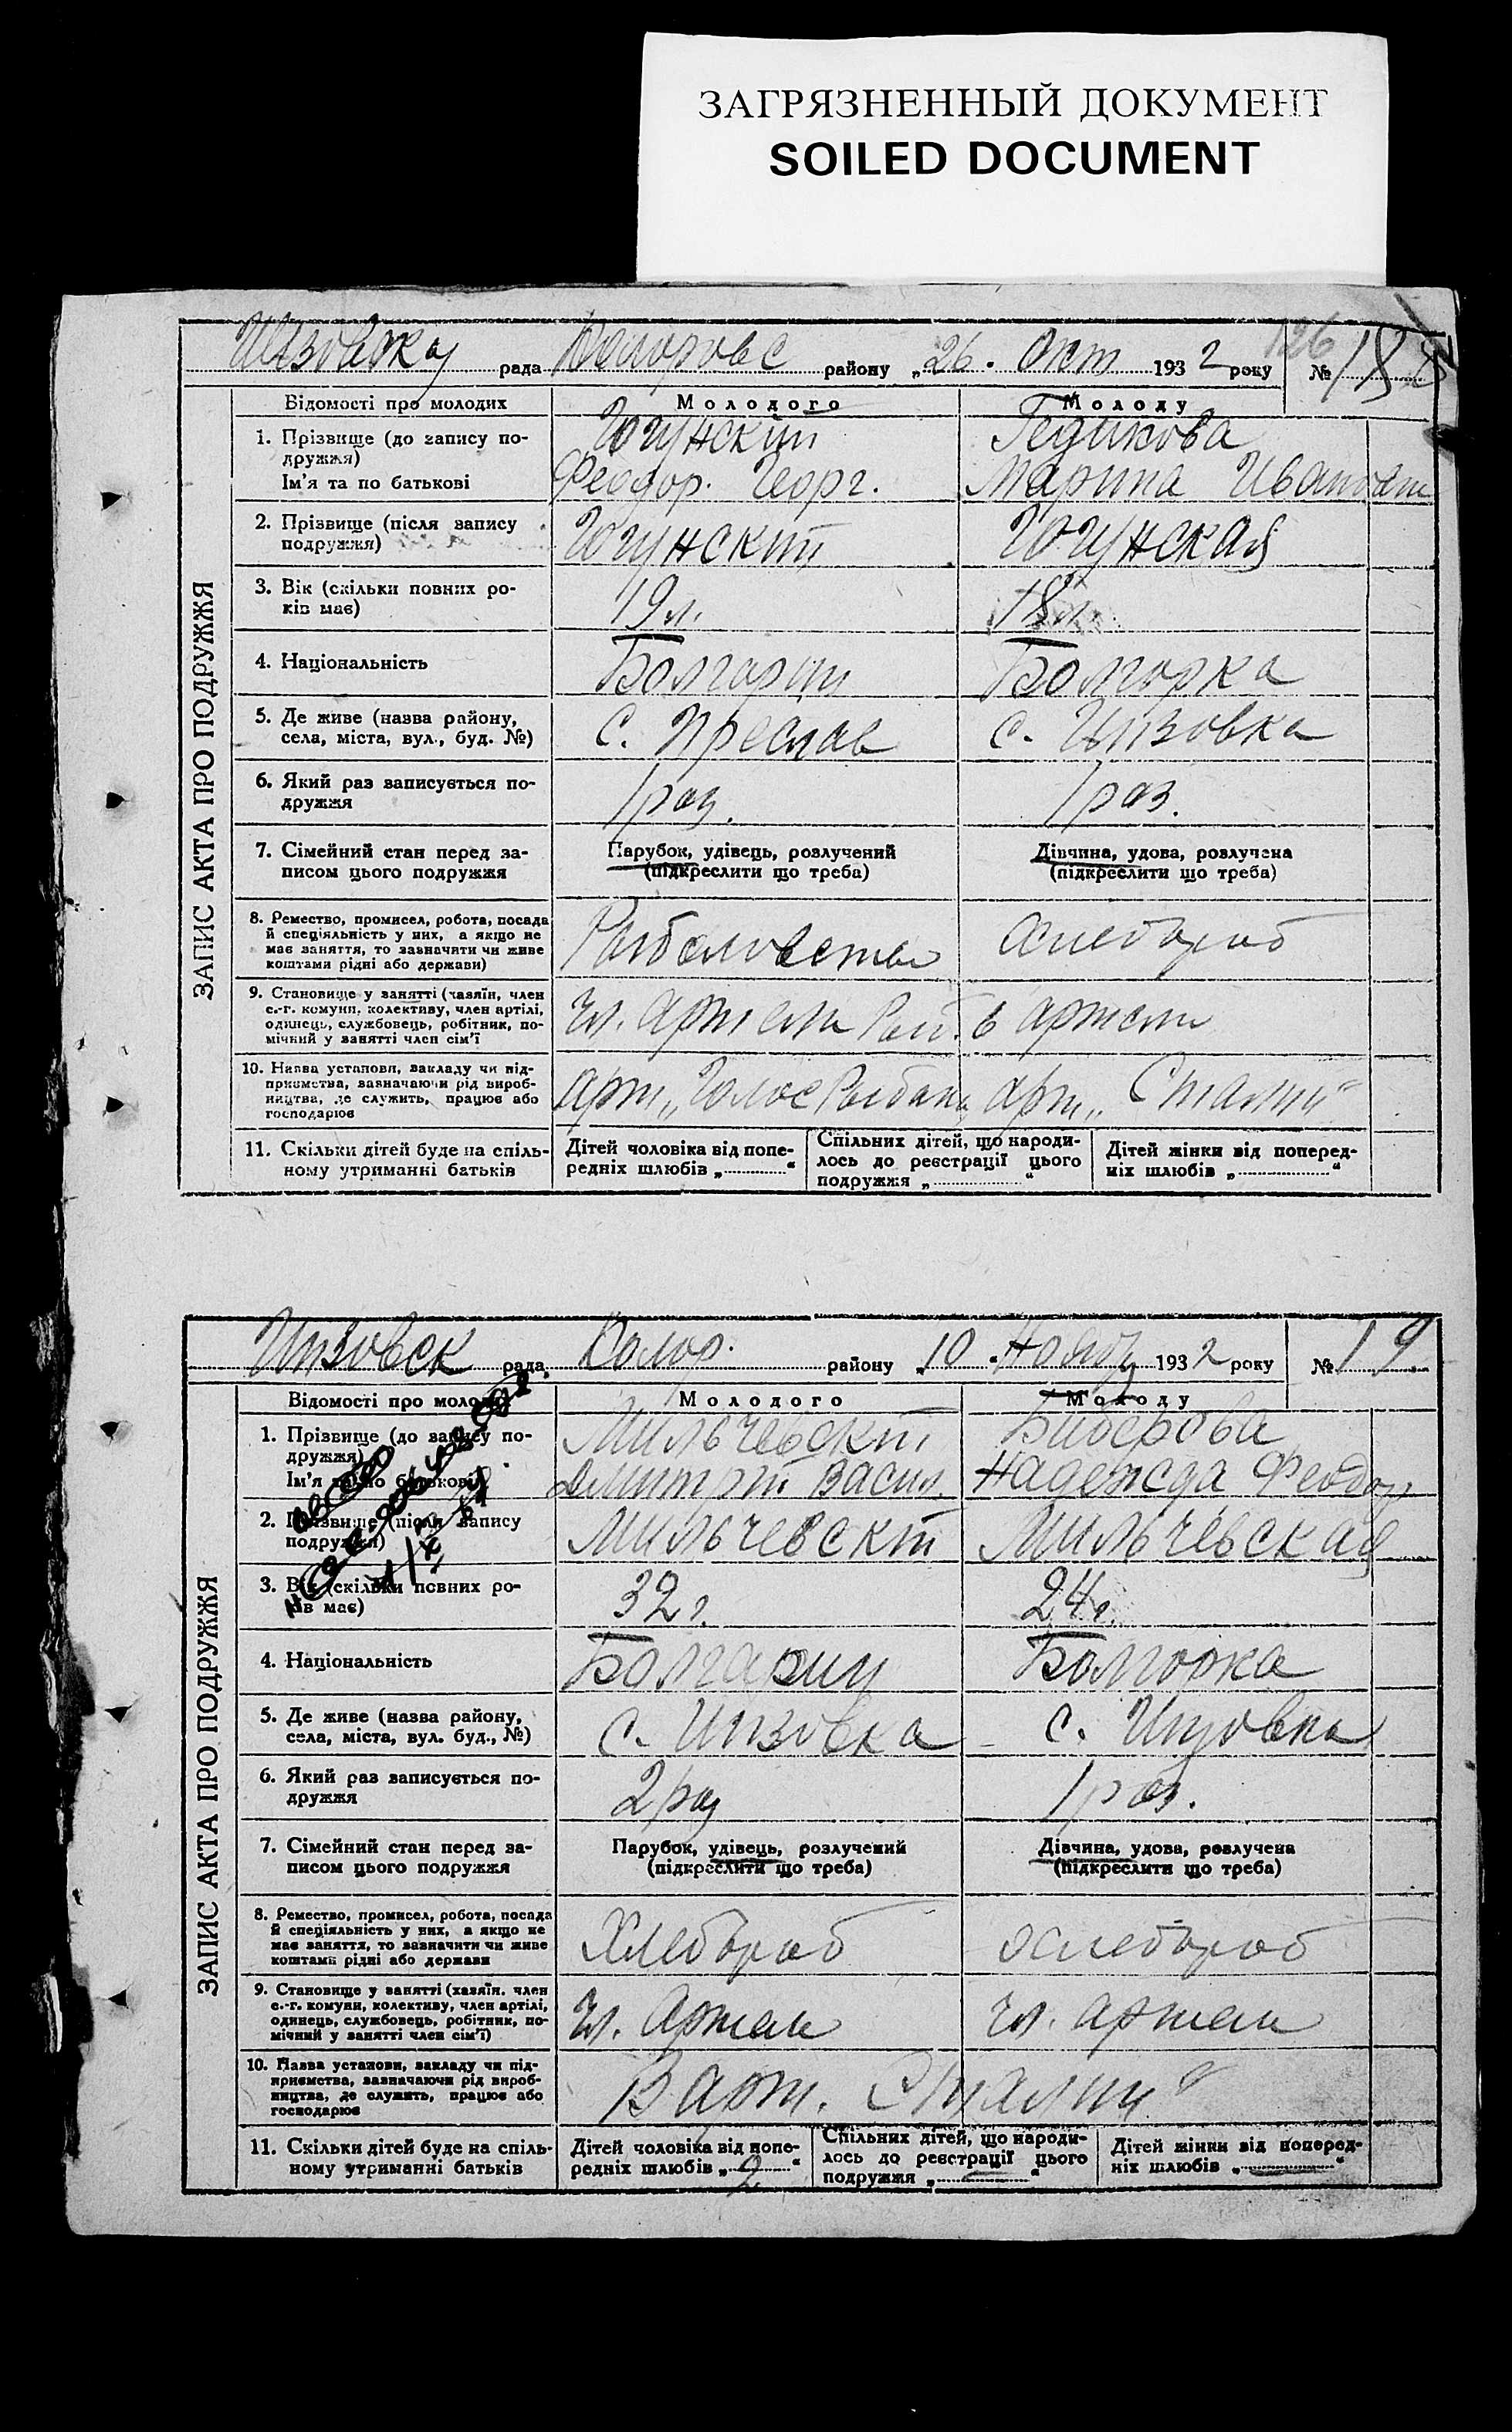 ЗАГРЯЗНЕННЫЙ ДОКУМЕНТ
SOILED DOCUMENT
126
рада району „26. Окт 1932 року № 18
ЗАПИС АКТА ПРО ПОДРУЖЖЯ
Відомості про молодих Молодого Молоду
1. Прізвище (до запису по-
дружжя)
Ім'я та по батькові
Гедикова
Феодор. Георг. Марина Иванов
2. Прізвище (після запису
подружжя)
3. Вік (скільки повних ро-
ків має)
19 л. 18 л.
4. Національність
Болгарин Болгорка
5. Де живе (назва району,
села, міста, вул., буд. №)
с. Преслав с. Инзовка
6. Який раз записується по-
дружжя
1 раз. 1 раз.
7. Сімейний стан перед за-
писом цього подружжя
Парубок, удівець, розлучений
(підкреслити що треба)
Дівчина, удова, розлучена
(підкреслити що треба)
8. Ремество, промисел, робота, посада
й спеціяльність у них, а якщо не
має заняття, то зазначити чи живе
коштами рідні або держави)
Рыболовство хлебороб
9. Становище у занятті (хазяїн, член
с.-г. комуни, колективу, член артілі,
одинець, службовець, робітник, по-
мічний у занятті член сім'ї
чл. Артели Рыб. в артели
10. Назва установи, закладу чи під-
приємства, зазначаючи рід вироб-
ництва, де служить, працює або
господарює
арт „Голос Рыбака арт „Сталин“
11. Скільки дітей буде на спіль-
ному утриманні батьків
Дітей чоловіка від попе-
редніх шлюбів „ “
Спільних дітей, що народи-
лось до реєстрації цього
подружжя „ “
Дітей жінки від поперед-
ніх шлюбів „ “
Инзовск рада Колор. району „10. Нояб 1932 року № 19.
ЗАПИС АКТА ПРО ПОДРУЖЖЯ
Відомості про молодих Молодого Молоду
1. Прізвище (до запису по-
дружжя)
Ім'я та по батькові
Мильчевский Биберова
Дмитрий Васил. Надежда Феодор
2. Прізвище (після запису
подружжя)
Мильчевский Мильчевская
3. Вік (скільки повних ро-
ків має)
32 г. 24 г.
4. Національність
Болгарин Болгорка
5. Де живе (назва району,
села, міста, вул. буд., №)
с. Инзовка с. Инзовка
6. Який раз записується по-
дружжя
2 раз 1 раз.
7. Сімейний стан перед за-
писом цього подружжя
Парубок, удівець, розлучений
(підкреслити що треба)
Дівчина, удова, розлучена
(підкреслити що треба)
8. Ремество, промисел, робота, посада
й спеціяльність у них, а якщо не
має заняття, то зазначити чи живе
коштами рідні або держави
Хлебороб хлебороб
9. Становище у занятті (хазяїн, член
с.-г. комуни, колективу, член артілі,
одинець, службовець, робітник, по-
мічний у занятті член сім'ї)
чл. Артели чл. артели
10. Назва установи, закладу чи під-
приємства, зазначаючи рід вироб-
ництва, де служить, працює або
господарює
В арт. Сталин“
11. Скільки дітей буде на спіль-
ному утриманні батьків
Дітей чоловіка від попе-
редніх шлюбів „2“
Спільних дітей, що народи-
лось до реєстрації цього
подружжя „—“
Дітей жінки від поперед-
ніх шлюбів „—“